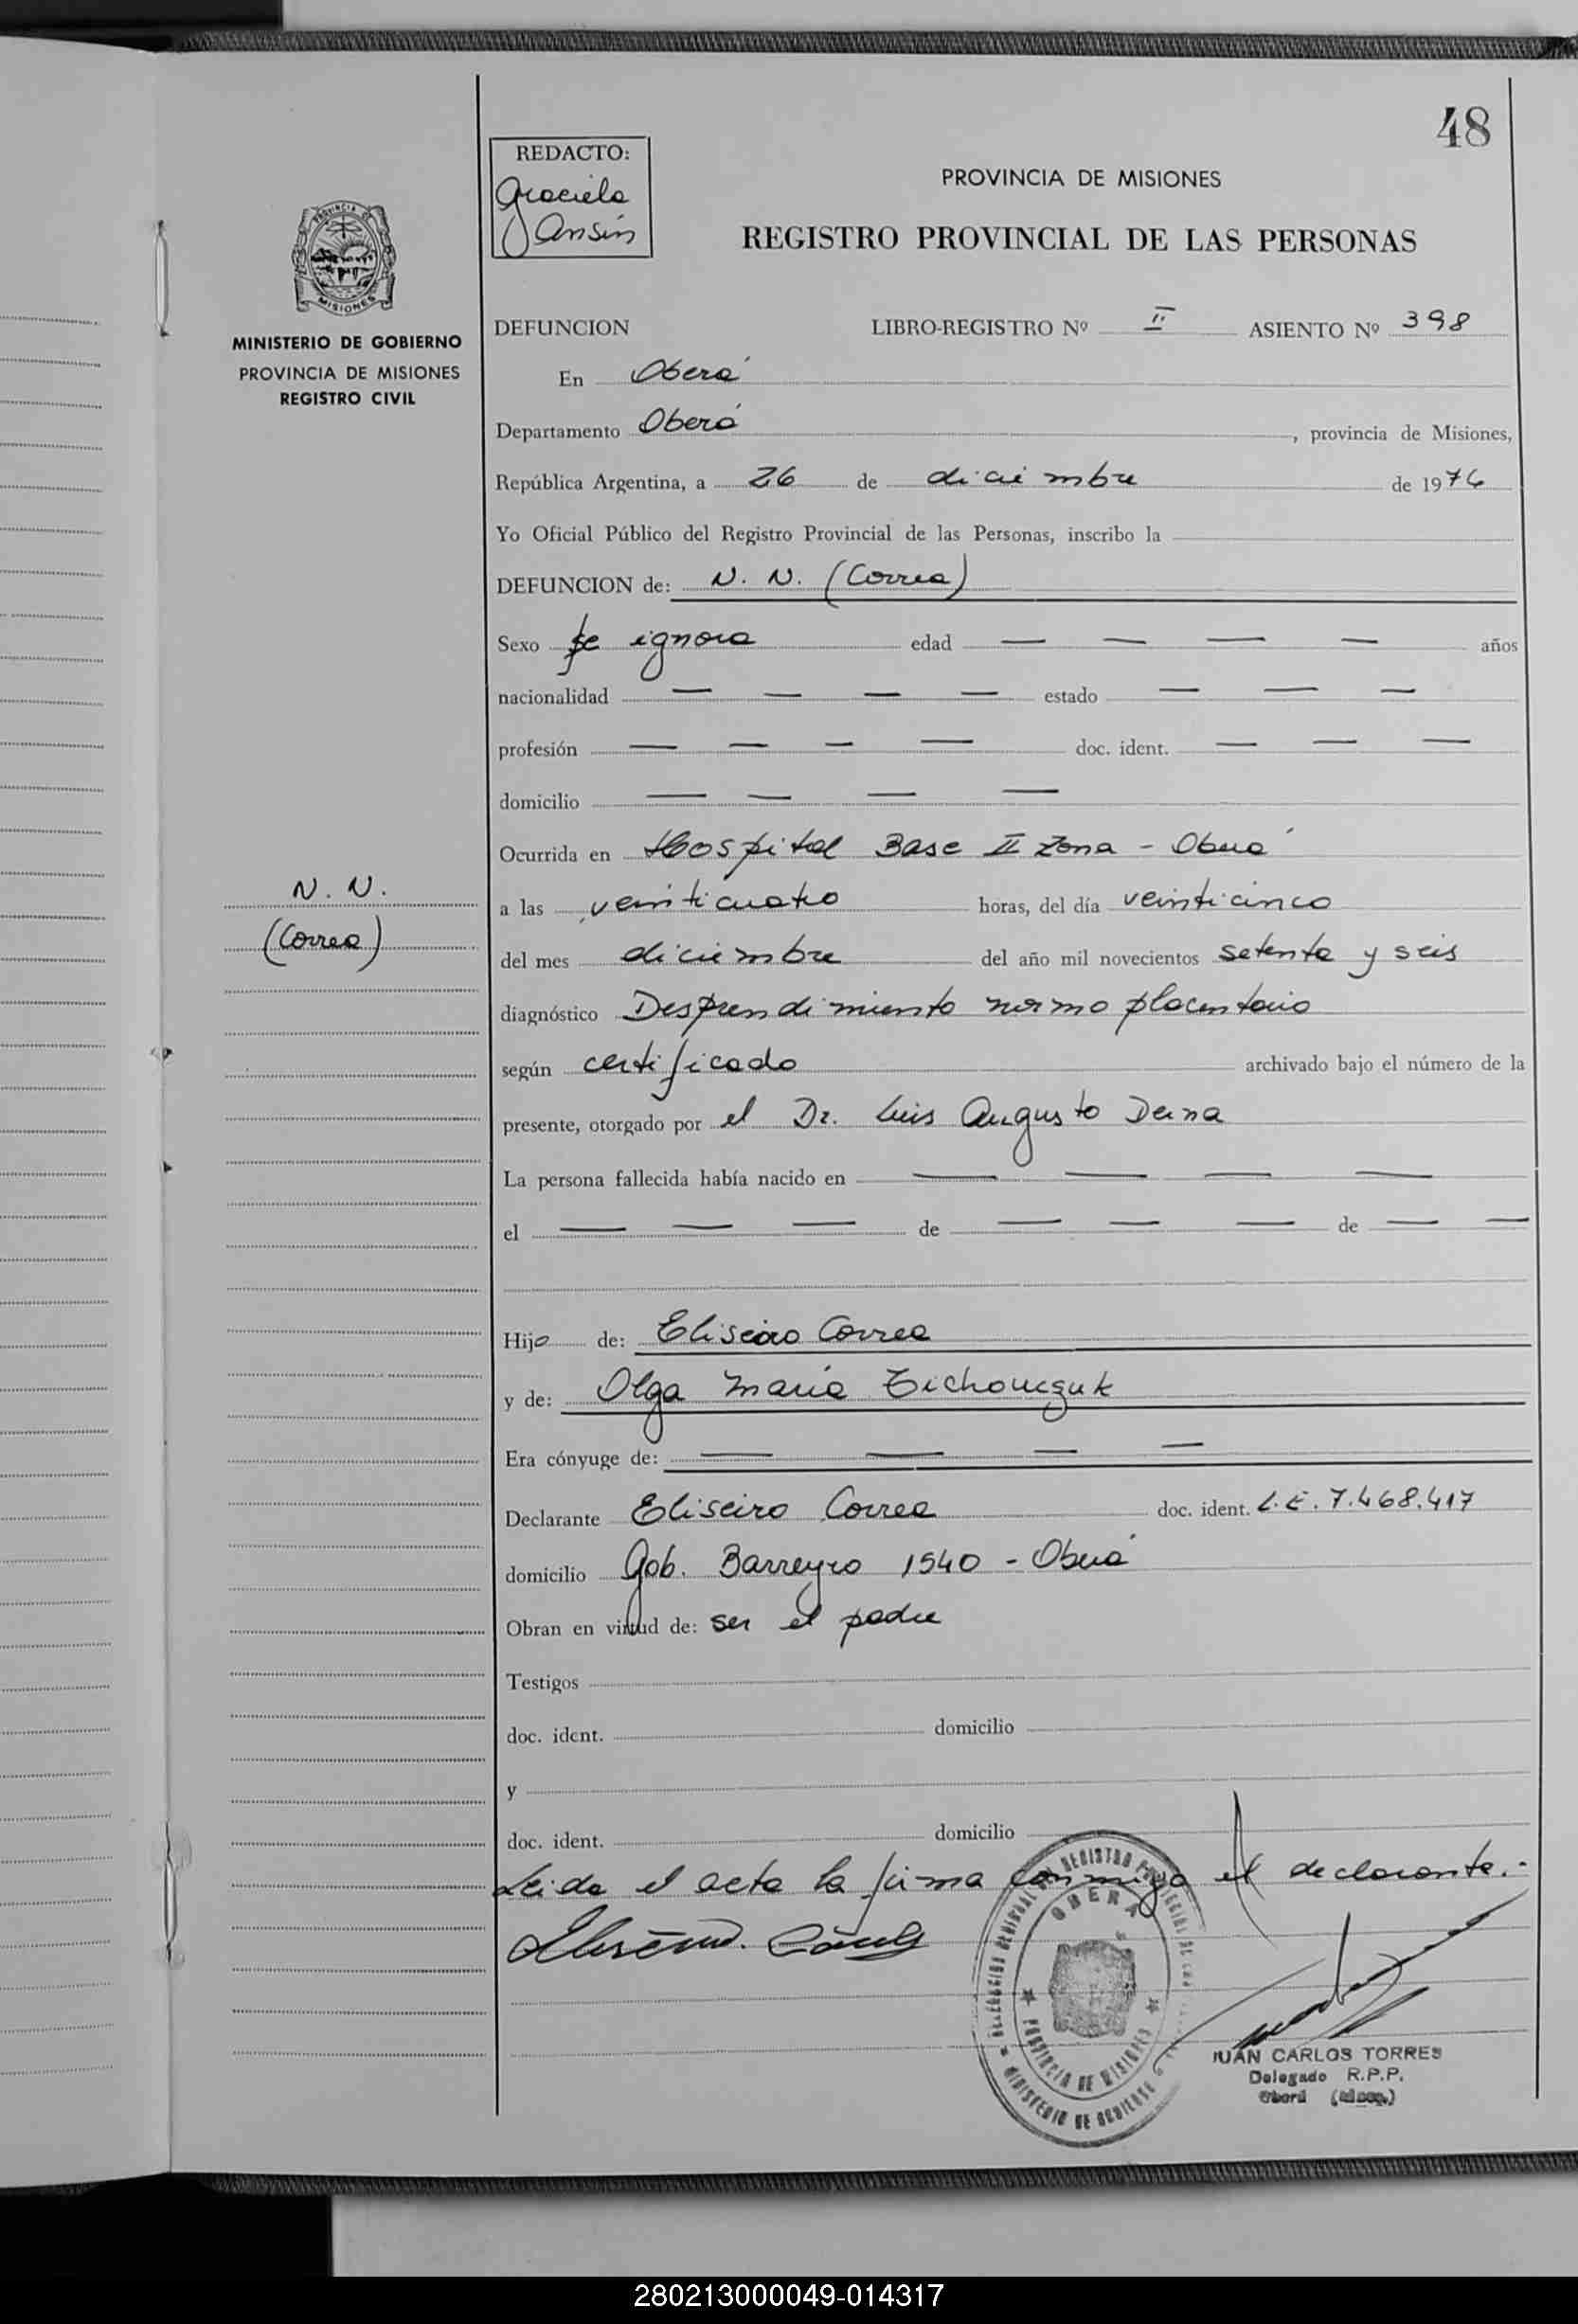 48
REDACTO:
Graciela
Ansín
PROVINCIA DE MISIONES
REGISTRO PROVINCIAL DE LAS PERSONAS
PROVINCIA DE
MISIONES
MINISTERIO DE GOBIERNO
PROVINCIA DE MISIONES
REGISTRO CIVIL
DEFUNCION LIBRO-REGISTRO Nº II ASIENTO Nº 398
En Oberá
Departamento Oberá, provincia de Misiones,
República Argentina, a 26 de diciembre de 1976
Yo Oficial Público del Registro Provincial de las Personas, inscribo la
DEFUNCION de: N. N. (Correa)
Sexo se ignora edad — — — — años
nacionalidad — — — — estado — — —
profesión — — — — doc. ident. — — —
domicilio — — — —
Ocurrida en Hospital Base II Zona - Oberá
N. N.
(Correa)
a las veinticuatro horas, del día veinticinco
del mes diciembre del año mil novecientos setenta y seis
diagnóstico Desprendimiento normo placentario
según certificado archivado bajo el número de la
presente, otorgado por el Dr. Luis Augusto Derna
La persona fallecida había nacido en — — — —
el — — — de — — — de — —
Hijo de: Eliseiro Correa
y de: Olga María
Era cónyuge de: — — — —
Declarante Eliseiro Correa doc. ident. L.E. 7.468.417
domicilio Gob. Barreyro 1540 - Oberá
Obran en virtud de: ser el padre
Testigos
doc. ident. domicilio
y
doc. ident. domicilio
Leida el acta la firma conmigo el declarante.-
OBERA
PROVINCIA DE MISIONES
MINISTERIO DE GOBIERNO
JUAN CARLOS TORRES
Delegado R.P.P.
Oberá (Mnes.)
280213000049-014317